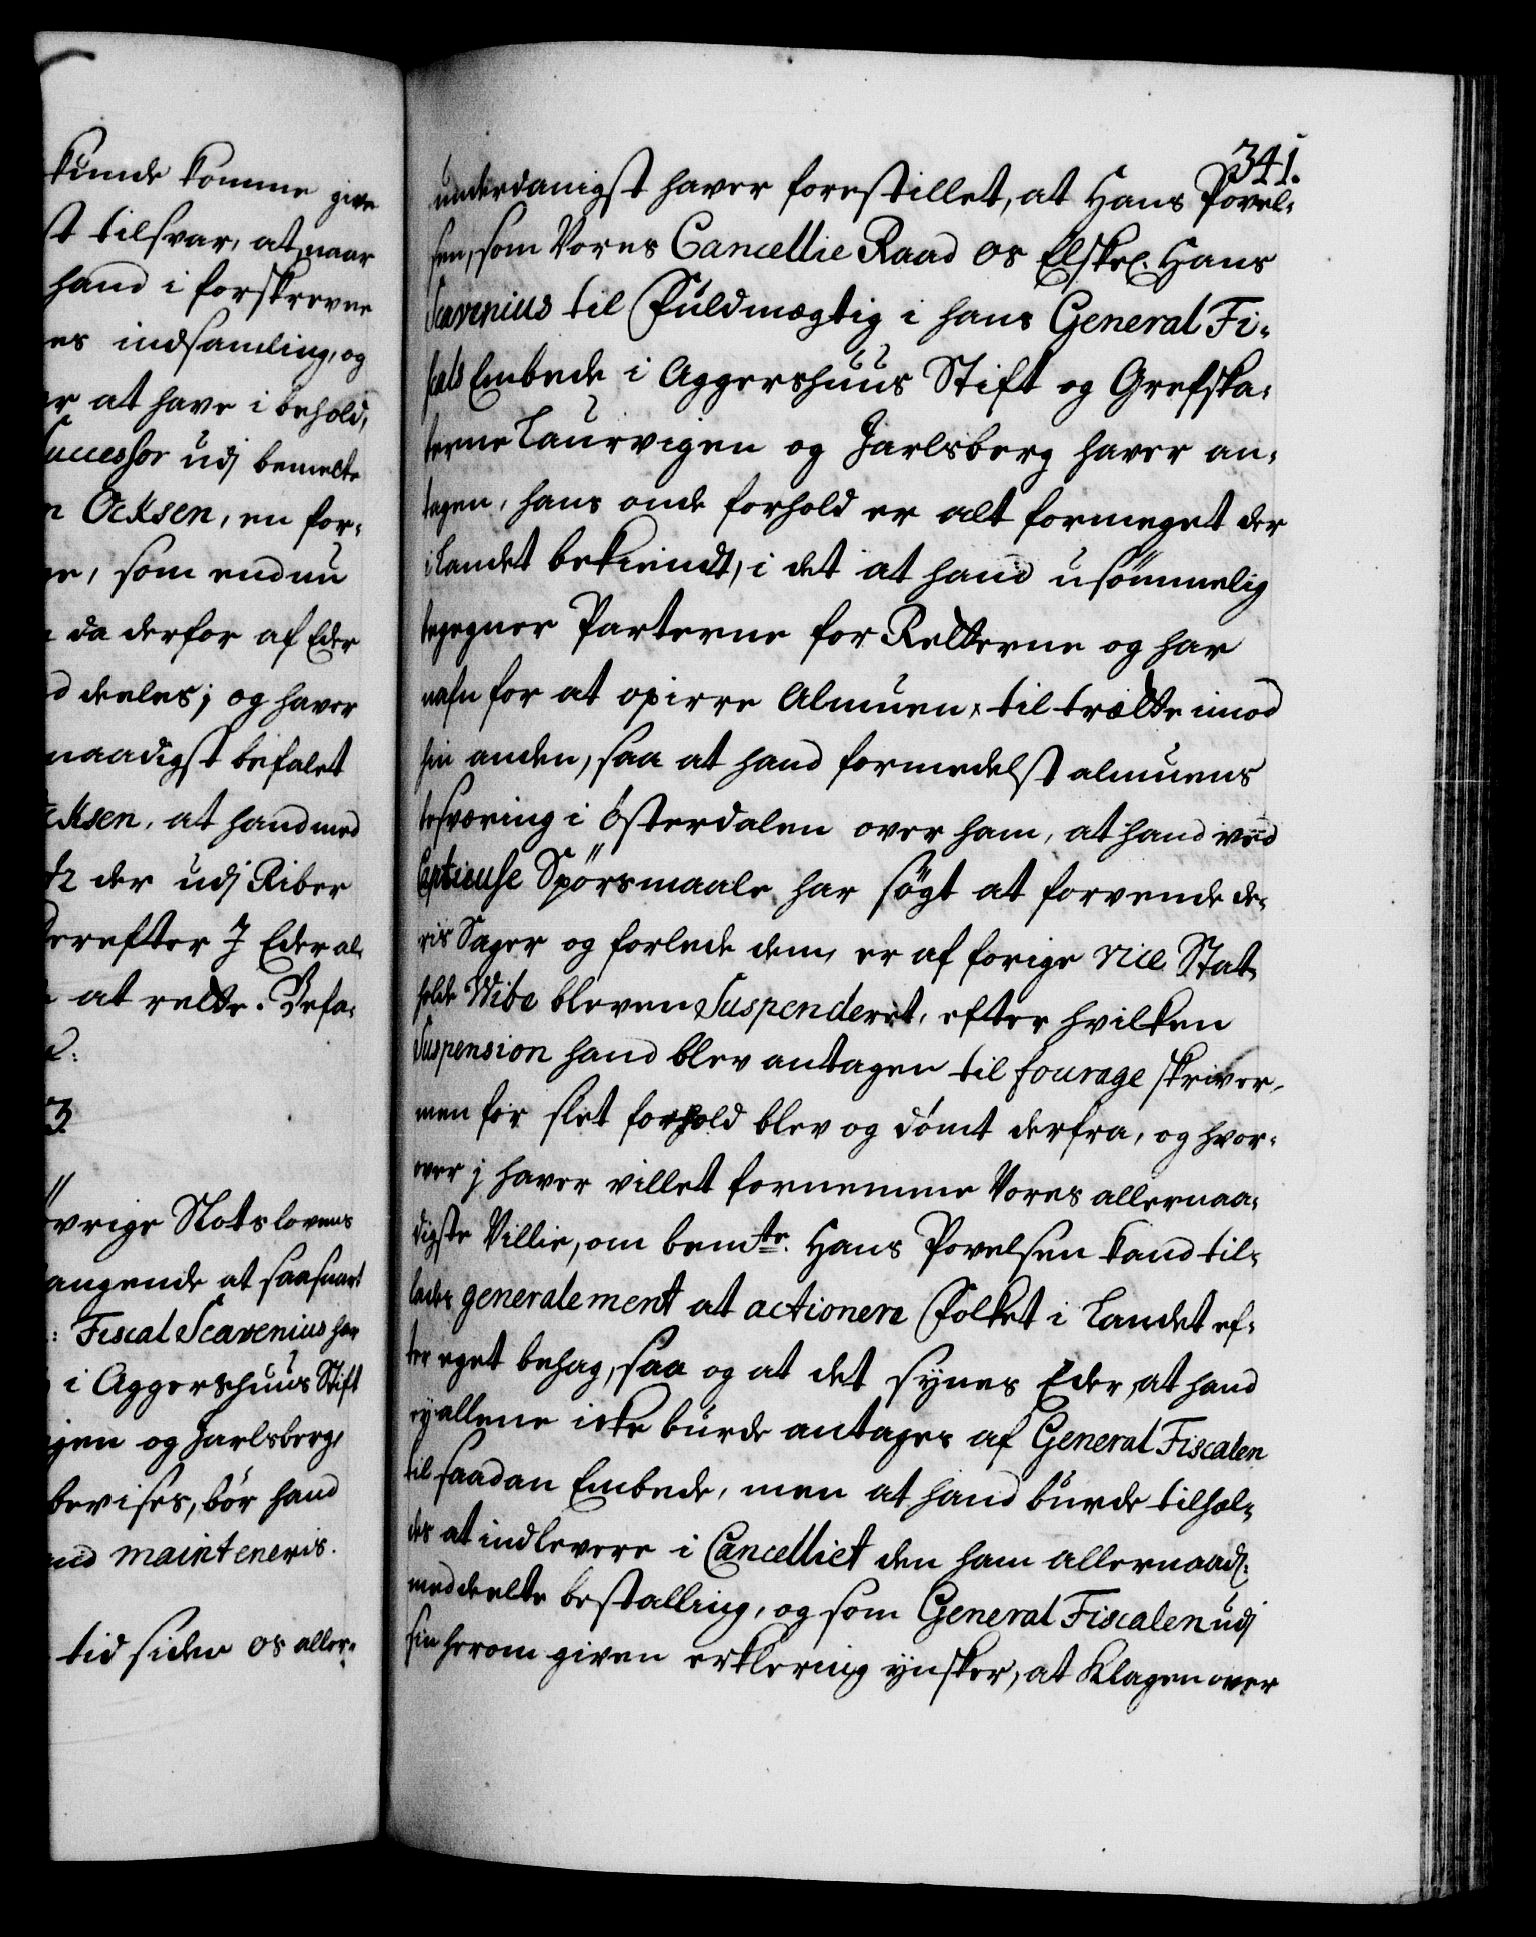 kunde komme give
st tilsvar, at naar
hand i forskrevne
es indsamling, og
er at have i behold,
uccessor udj bemelte
n Ocksen, en for-
ge, som endnu
da derfor af Eder
d deeles; og haver
naadigst befalet
cksen, at hand med
der udj Riber
derefter I Eder al-
at rette. Befa-
3
øvrige Slotslovens
angende at saasnart
Fiscal Scavenius har
i Aggershuus Stift
igen og Jarlsberg,
bevises, bør hand
ind mainteneris.
tid siden os aller-
341.
underdanigst haver forestillet, at Hans Povel-
sen, som Vores Cancellie Raad os Elskel. Hans
Scavenius til Fuldmægtig i hans General Fi-
scals Embede i Aggershuus Stift og Grefska-
berne Laurvigen og Jarlsberg haver an-
tagen, hans onde forhold er alt formeget der
i Landet bekiendt, i det at hand usømmelig
begegner Parterne for Retterne og har
nafn for at opirre Almuen til trætte imod
hin anden, saa at hand formedelst almuens
besværing i Østerdalen over ham, at hand ved
Captieuse Spørsmaale har søgt at forvende de-
ris Sager og forlede dem, er af forige vice Stat-
holder Wibe bleven Suspenderet, efter hvilken
Suspension hand blev antagen til fourage skriver,
men for slet forhold blev og dømt derfra, og hvor-
over j haver villet fornemme Vores allernaa-
digste Villie, om bemte. Hans Povelsen kand til-
lades generalement at actionere Folket i Landet ef-
ter eget behag, saa og at det synes Eder, at hand
ey allene icke burde antages af General Fiscalen
til saadan Embede, men at hand burde tilhol-
des at indlevere i Cancelliet den ham allernaad:
meddeelte bestalling, og som General Fiscalen udj
sin herom given erklering ynsker, at Klagen over